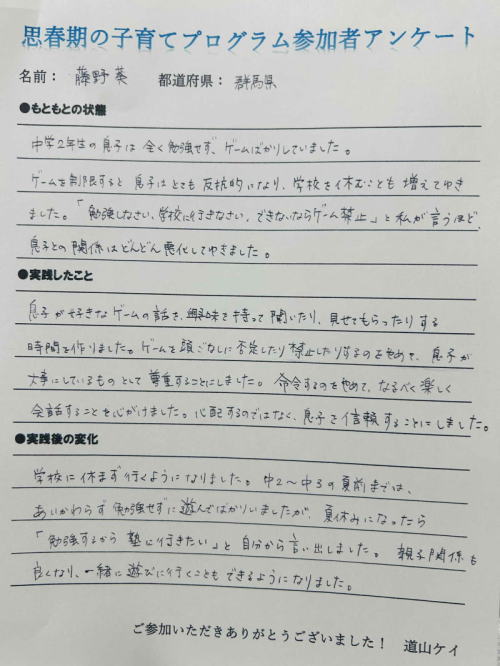 思春期の子育てプログラム参加者アンケート
名前： 藤野 葵 都道府県： 群馬県
●もともとの状態
中学2年生の息子は全く勉強せず、ゲームばかりしていました。
ゲームを制限すると息子はとても反抗的になり、学校を休むことも増えてゆき
ました。「勉強しなさい、学校に行きなさい、できないならゲーム禁止」と私が言うほど、
息子との関係はどんどん悪化してゆきました。
●実践したこと
息子が好きなゲームの話を、興味を持って聞いたり、見せてもらったりする
時間を作りました。ゲームを頭ごなしに否定したり禁止したりするのをやめて、息子が
大事にしているものとして尊重することにしました。命令するのをやめて、なるべく楽しく
会話することを心がけました。心配するのではなく、息子を信頼することにしました。
●実践後の変化
学校に休まず行くようになりました。中2～中3の夏前までは、
あいかわらず勉強せずに遊んでばかりいましたが、夏休みになったら
「勉強するから塾に行きたい」と自分から言い出しました。親子関係も
良くなり、一緒に遊びに行くこともできるようになりました。
ご参加いただきありがとうございました！ 道山ケイ